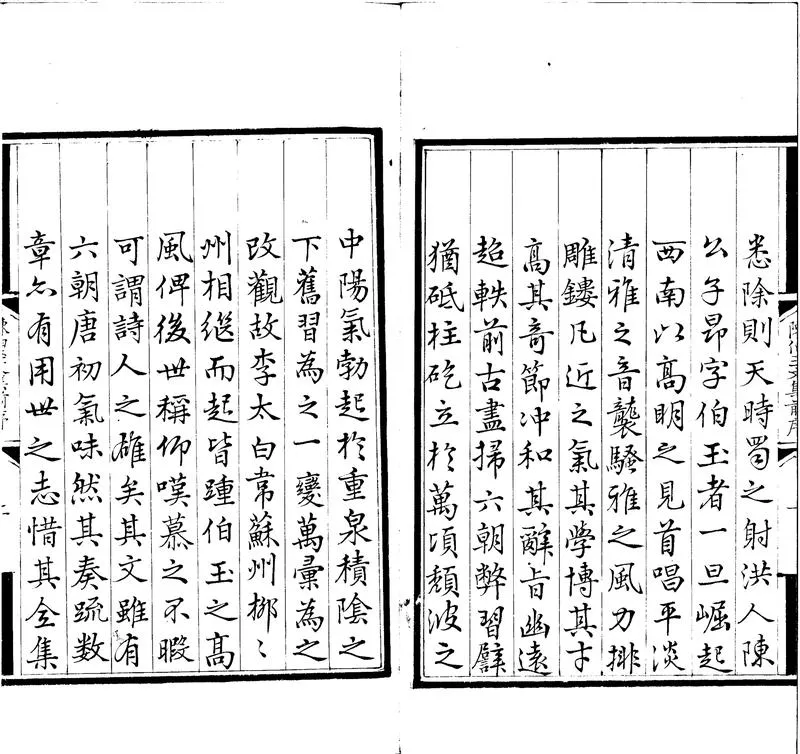 悉除則天時蜀之射洪人陳
公子昂字伯玉者一旦崛起
西南以髙明之見首唱平淡
清雅之音襲騷雅之風力排
雕鏤凡近之氣其學博其才
髙其竒節冲和其辭旨幽遠
超軼前古盡掃六朝弊習譬
猶砥柱矻立扵萬頃頽波之
中陽氣勃起扵重泉積陰之
下舊習為之一變萬彚為之
改觀故李太白韋蘇州栁〻
州相継而起皆踵伯玉之髙
風俾後世稱仰嘆慕之不暇
可謂詩人之雄矣其文雖有
六朝唐初氣味然其奏疏数
章亦有用世之志惜其全集